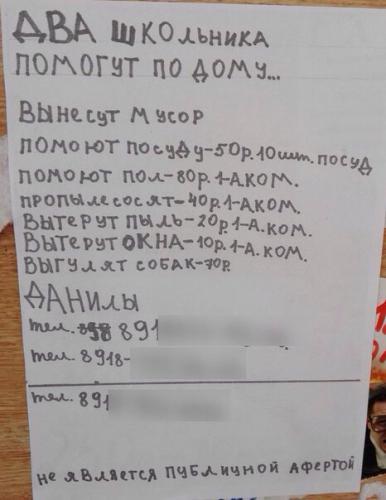 ДВА ШКОЛЬНИКА
ПОМОГУТ ПО ДОМУ...
ВЫНЕСУТ МУСОР
ПОМОЮТ ПОСУДУ-50р.10шт. ПОСУД
ПОМОЮТ ПОЛ-80р.1-АКОМ.
ПРОПЫЛЕСОСЯТ-40р.1-АКОМ.
ВЫТЕРУТ ПЫЛЬ-20р.1-А.КОМ.
ВЫТЕРУТ ОКНА-10р.1-А.КОМ.
ВЫГУЛЯТ СОБАК-70р.
ДАНИЛЫ
тел. 891
тел. 8918-
тел. 891
не является публичной афертой